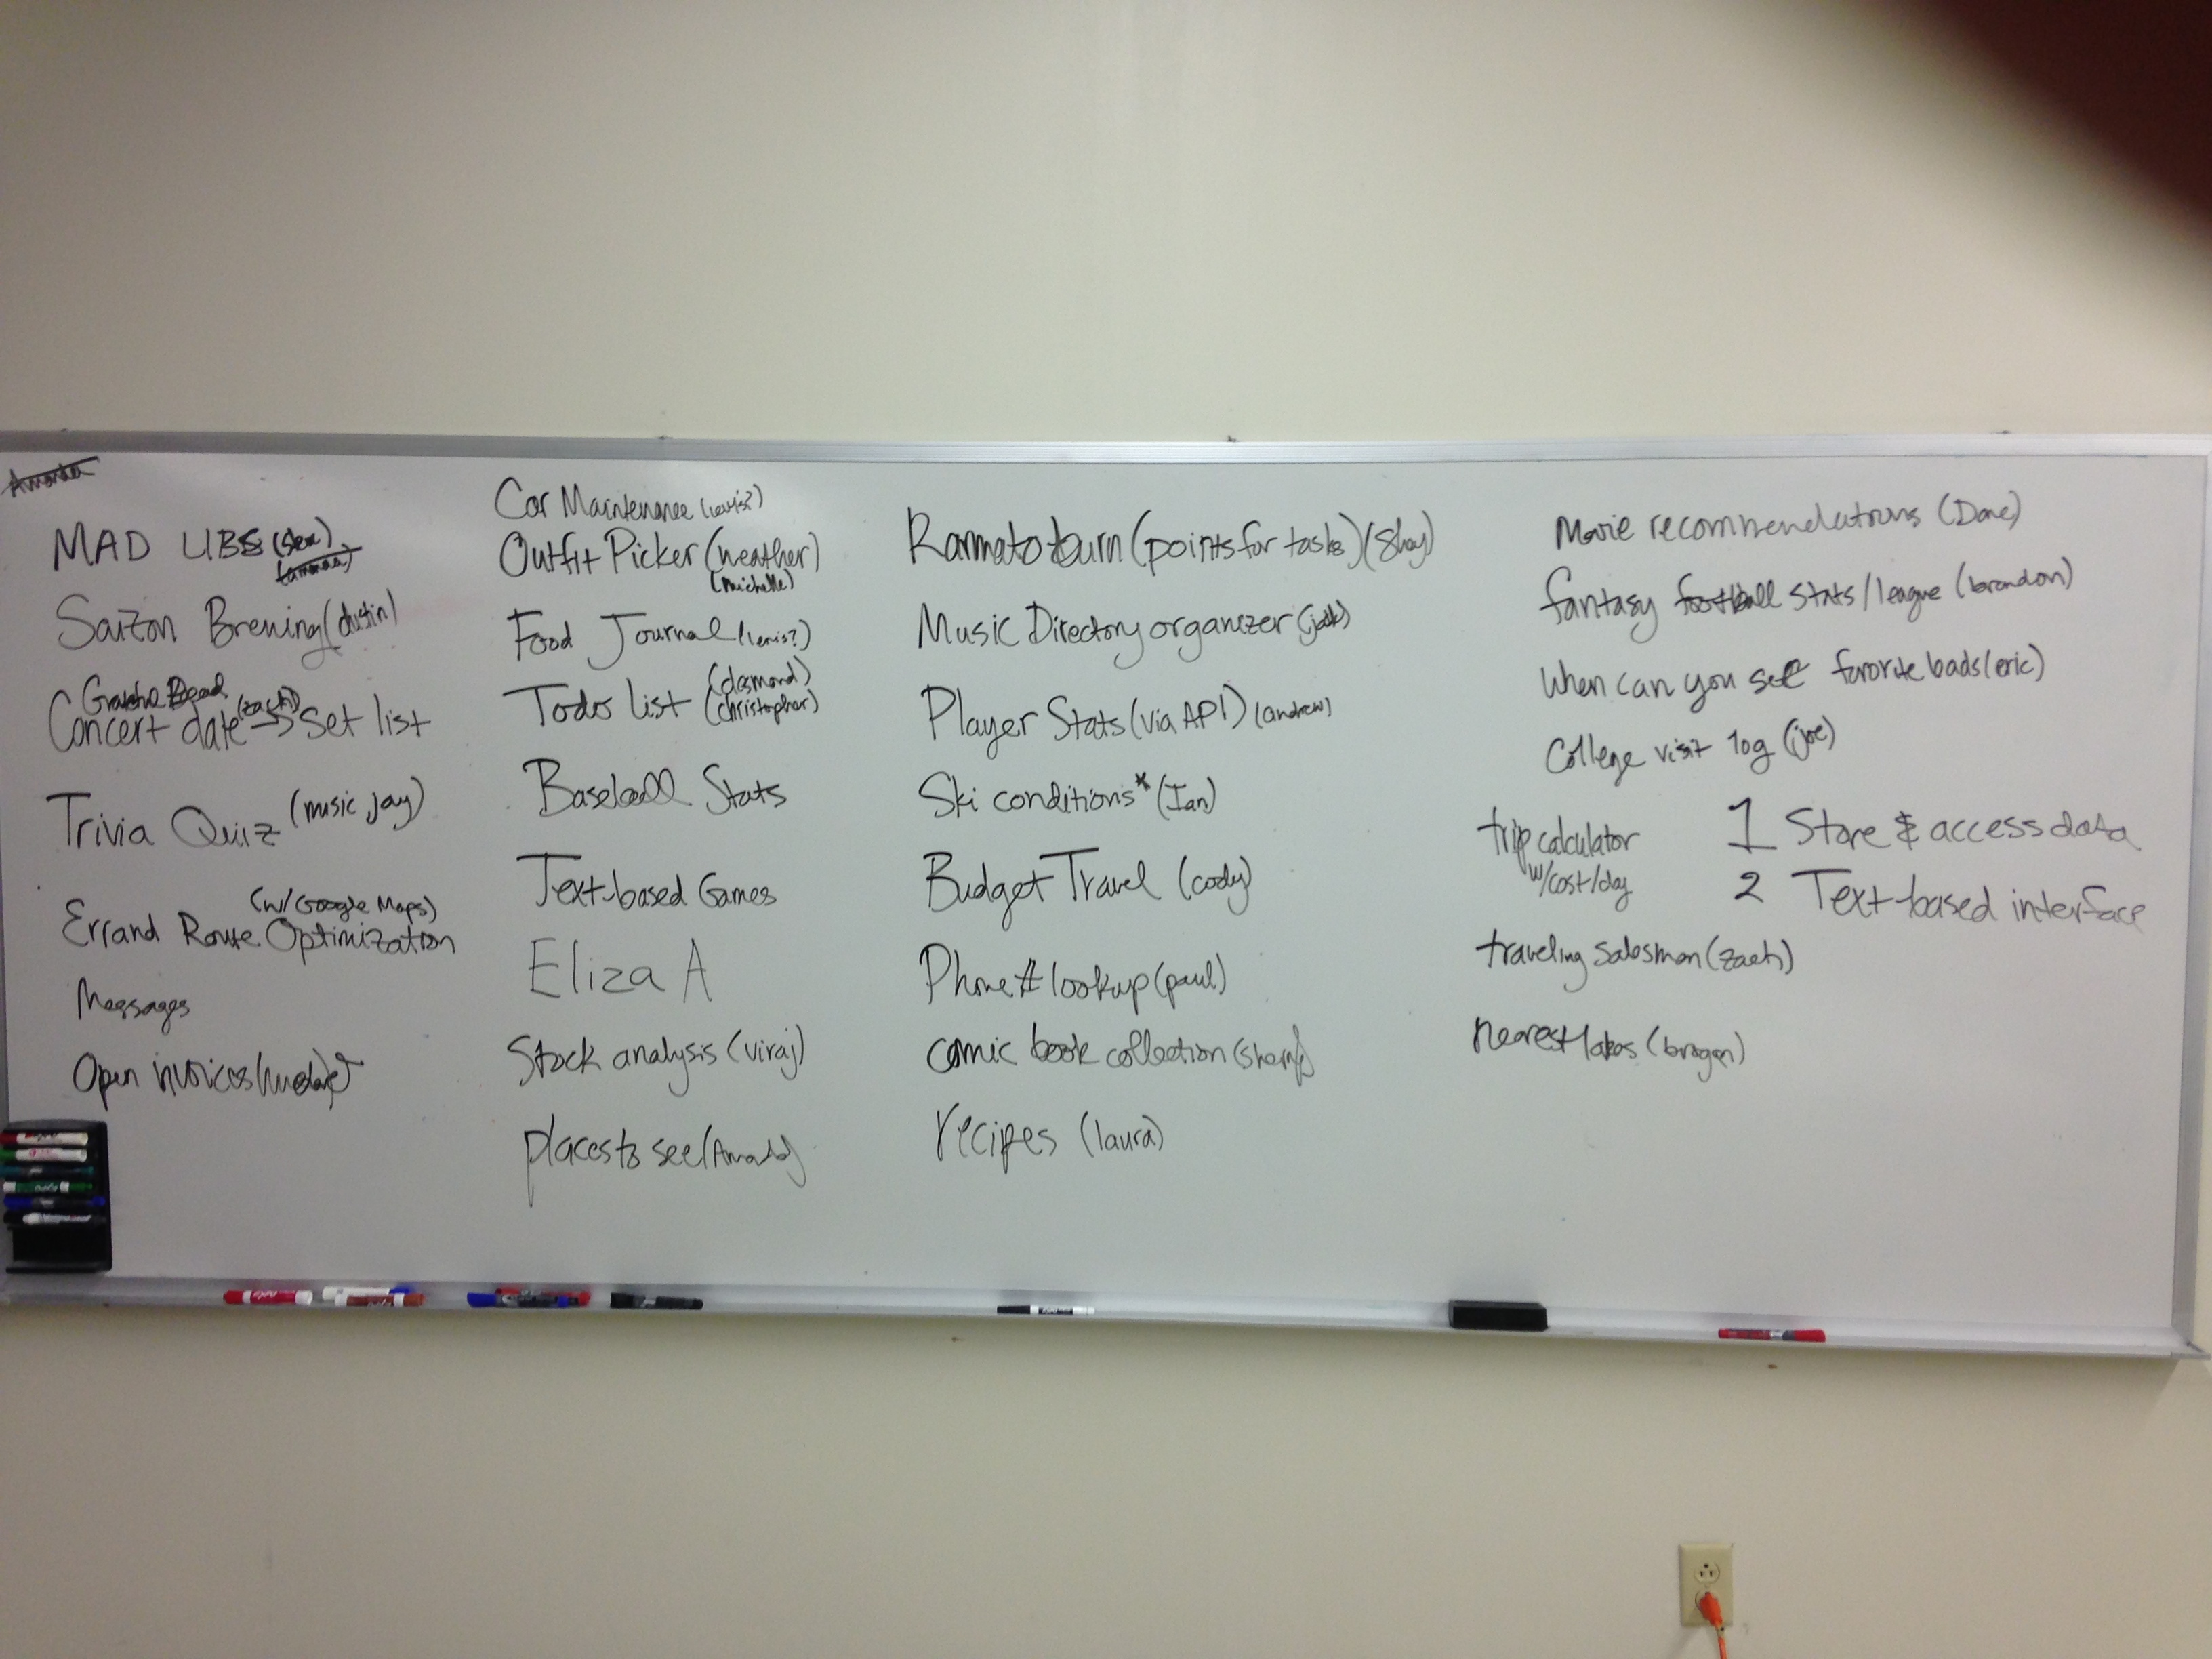 Amanda
MAD LIBS (Alex)
Saizon Brewing (dustin)
Grateful Dead
Concert date (zach) → Set list
Trivia Quiz (music, jay)
(w/ Google Maps)
Errand Route Optimization
Messages
Open invoices
Car Maintenance (lewis?)
Outfit Picker (weather)
(michelle)
Food Journal (lewis?)
Todo list (desmond)
(christopher)
Baseball Stats
Text-based Games
Eliza A
Stock analysis (viraj)
places to see (Amanda)
(points for tasks) (Shay)
Music Directory organizer (jack)
Player Stats (via API) (andrew)
Ski conditions* (Ian)
Budget Travel (cody)
Phone # lookup (paul)
comic book collection
recipes (laura)
Movie recommendations (Dane)
fantasy football stats/league (brandon)
When can you see favorite bads (eric)
College visit log (joe)
trip calculator
w/cost/day
1 Store & access data
2 Text-based interface
traveling salesman (zach)
nearest lakes (brogan)